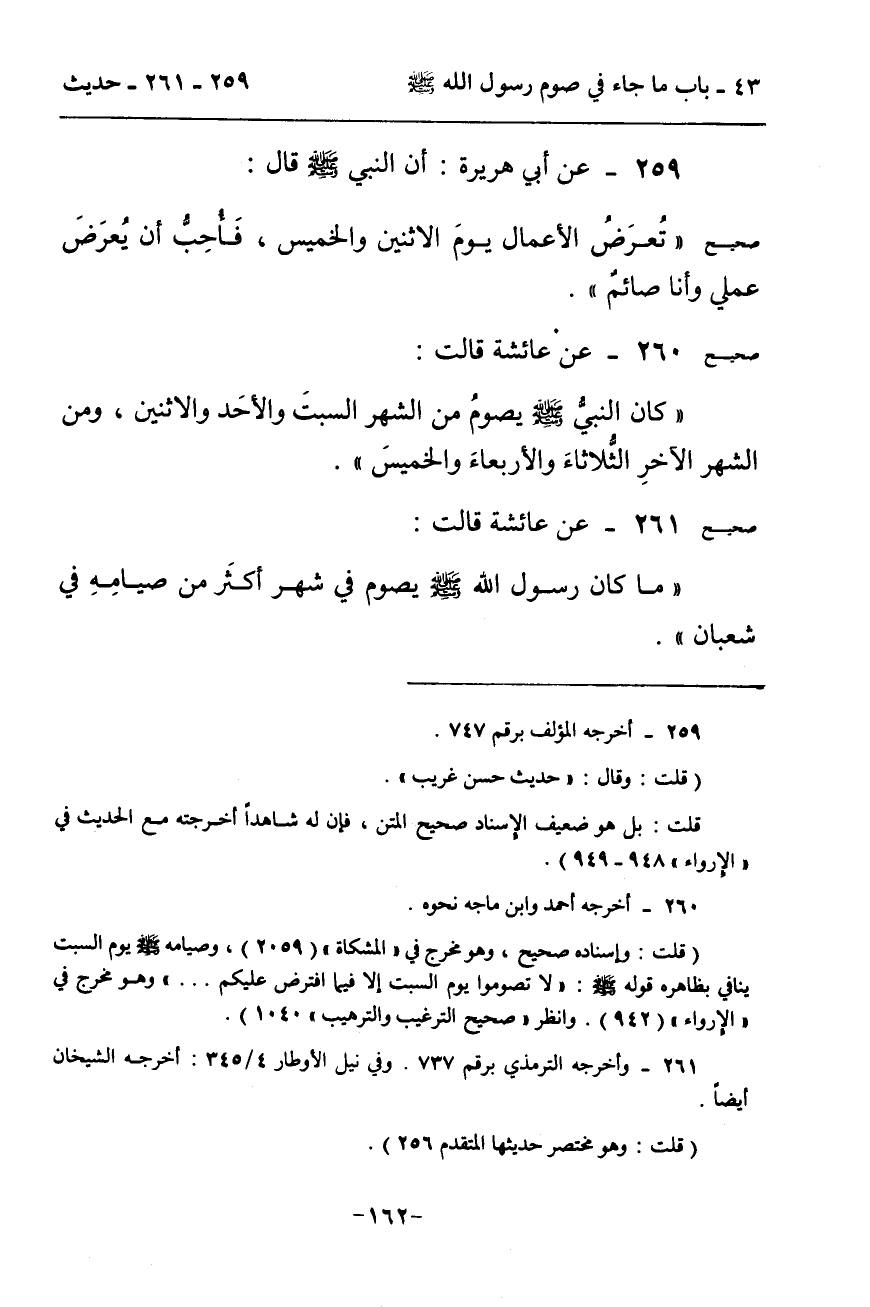 ٤٣ ـ باب ما جاء في صوم رسول الله ﷺ ٢٥٩ ـ ٢٦١ ـ حديث
٢٥٩ ـ عن أبي هريرة : أن النبي ﷺ قال :
صحيح « تُعرَضُ الأعمال يومَ الاثنين والخميس ، فَأُحِبُّ أن يُعرَضَ
عملي وأنا صائمٌ » .
صحيح ٢٦٠ ـ عن عائشة قالت :
« كان النبيُّ ﷺ يصومُ من الشهر السبتَ والأحَد والاثنين ، ومن
الشهر الآخرِ الثُّلاثاءَ والأربعاءَ والخميسَ » .
صحيح ٢٦١ ـ عن عائشة قالت :
« ما كان رسول الله ﷺ يصوم في شهر أكثَر من صيامِهِ في
شعبان » .
٢٥٩ ـ أخرجه المؤلف برقم ٧٤٧ .
( قلت : وقال : « حديث حسن غريب » .
قلت : بل هو ضعيف الإسناد صحيح المتن ، فإن له شاهداً أخرجته مع الحديث في
« الإرواء » ٩٤٨ ـ ٩٤٩ ) .
٢٦٠ ـ أخرجه أحمد وابن ماجه نحوه .
( قلت : وإسناده صحيح ، وهو مخرج في « المشكاة » ( ٢٠٥٩ ) ، وصيامه ﷺ يوم السبت
ينافي بظاهره قوله ﷺ : « لا تصوموا يوم السبت إلا فيما افترض عليكم . . . » وهو مخرج في
« الإرواء » ( ٩٤٢ ) . وانظر « صحيح الترغيب والترهيب » ١٠٤٠ ) .
٢٦١ ـ وأخرجه الترمذي برقم ٧٣٧ . وفي نيل الأوطار ٣٤٥/٤ : أخرجه الشيخان
أيضاً .
( قلت : وهو مختصر حديثها المتقدم ٢٥٦ ) .
-١٦٢-